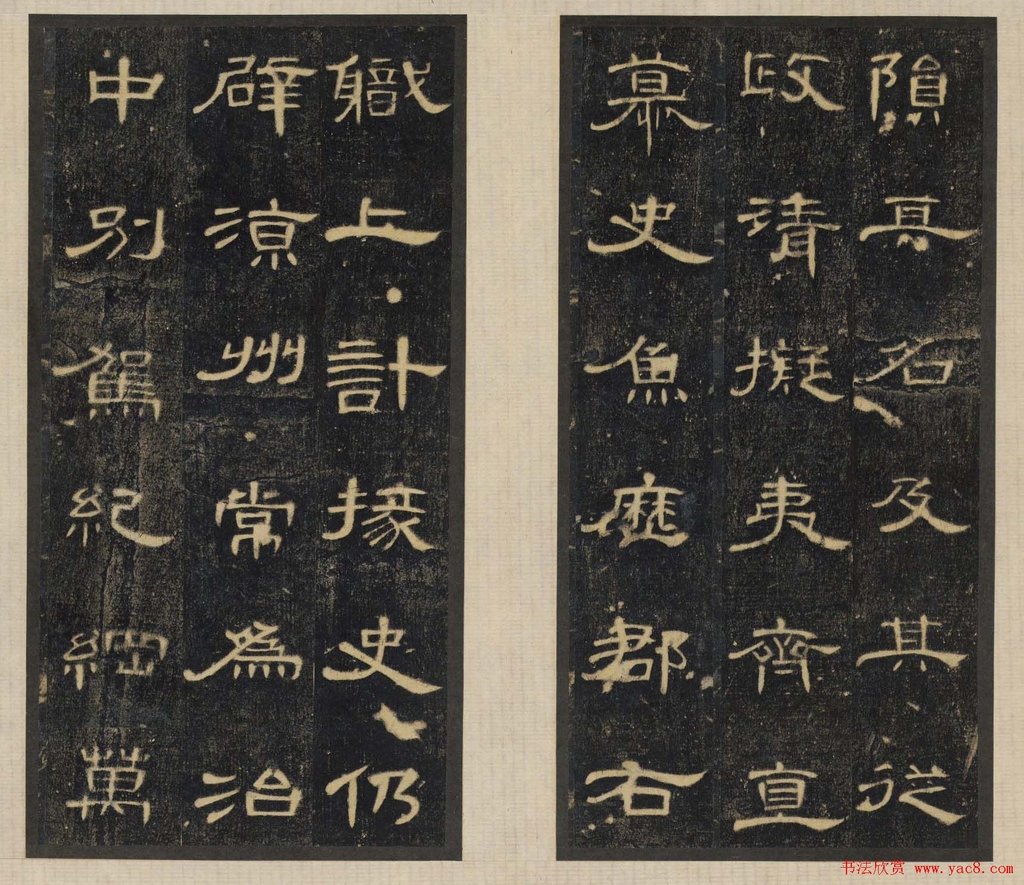 隕其名及其從
政清擬夷齊直
慕史魚歷郡右
職上計掾史仍
辟涼州常爲治
中別駕紀綱萬
书法欣赏 www.yac8.com